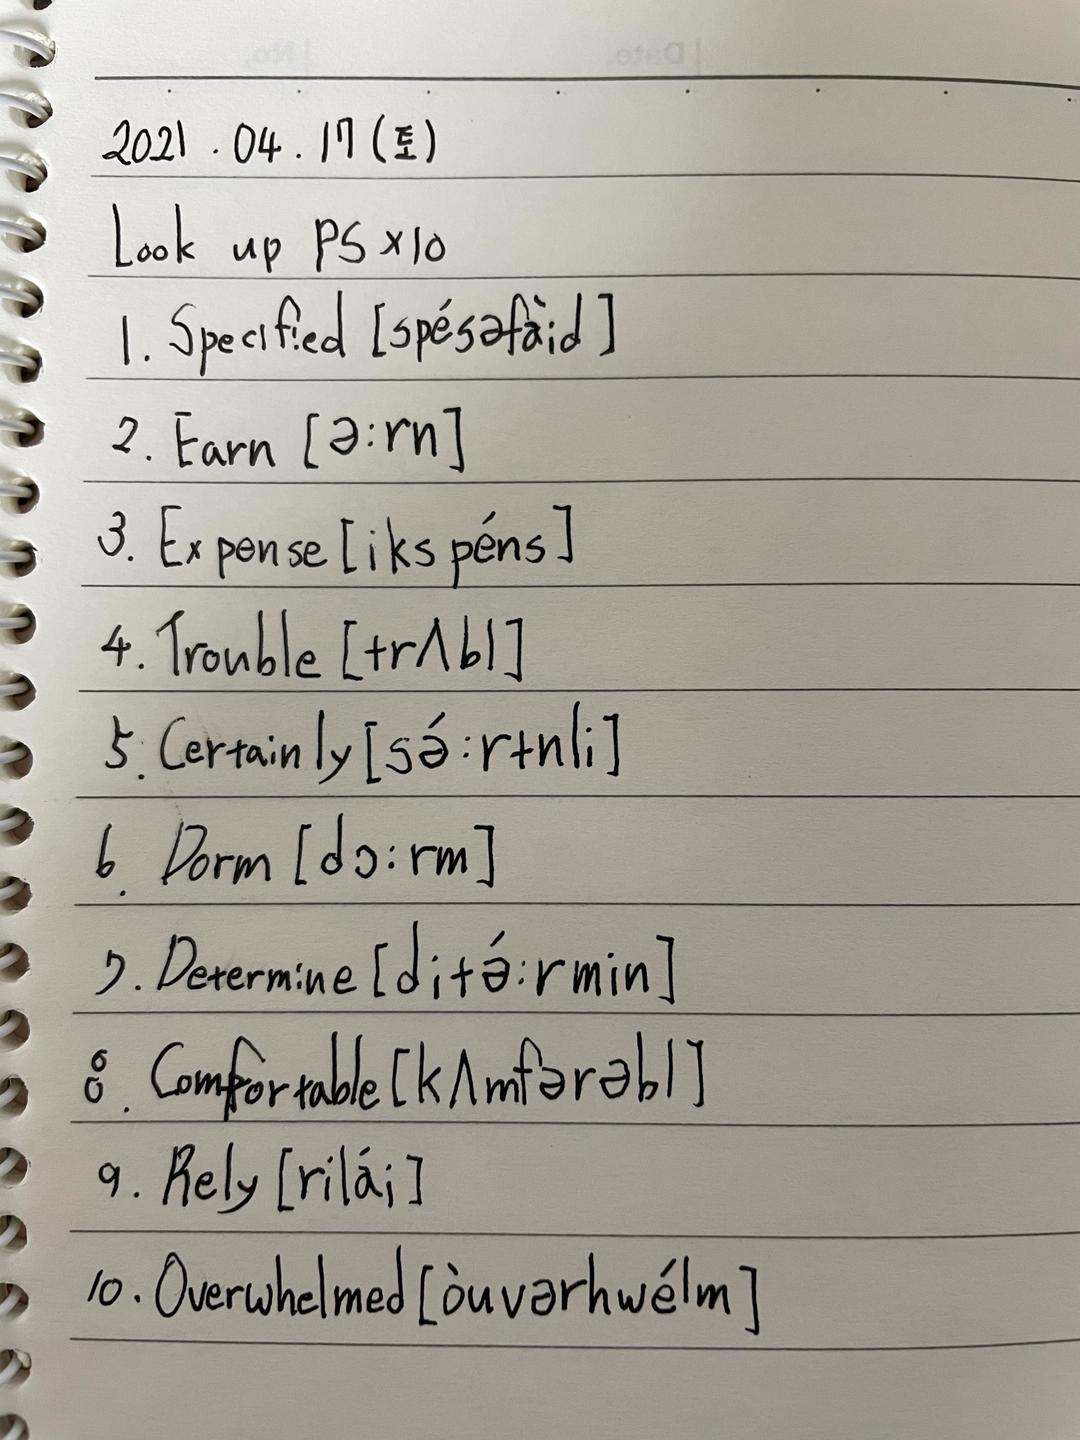 2021.04.17(토)
Look up PS x10
1. Specified [spésəfàid]
2. Earn [ə:rn]
3. Expense [ikspéns]
4. Trouble [trʌbl]
5. Certainly [sə́:rtnli]
6. Dorm [dɔ:rm]
7. Determine [ditə́:rmin]
8. Comfortable [kʌmfərəbl]
9. Rely [rilái]
10. Overwhelmed [òuvərhwélm]